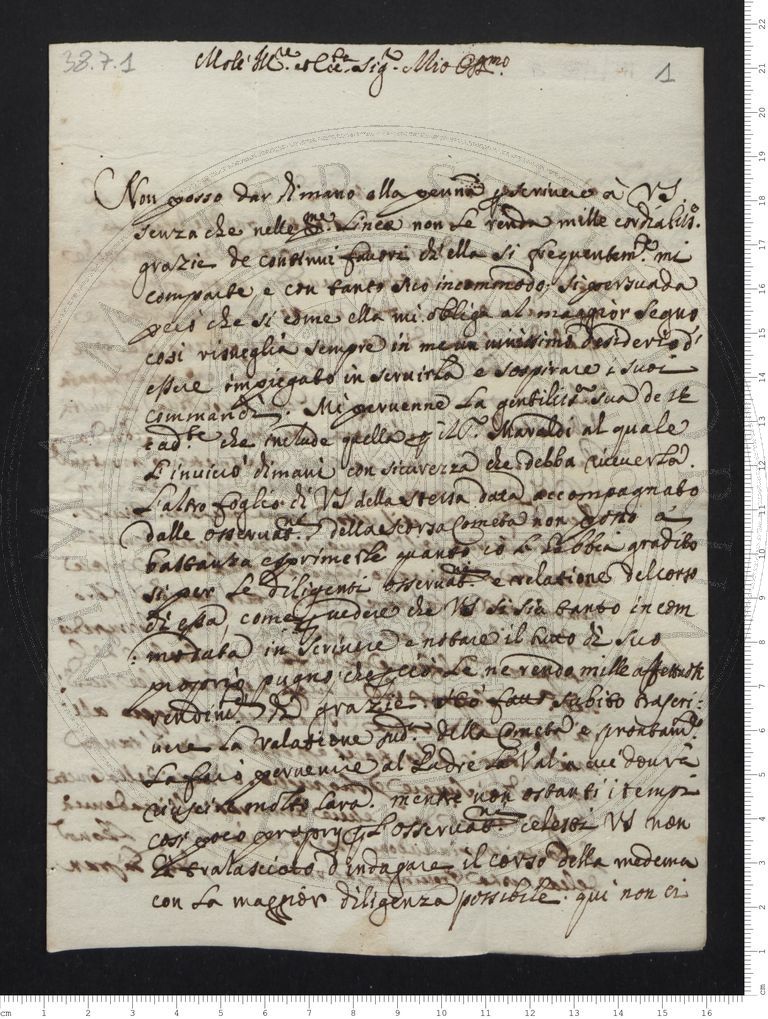 38.7.1
1
Molt Ill.re et Ecc. Sig.r Mio Oss.mo
Non posso dar di mano alla penna p scrivere à VS
senza che nelle p.me linee non le renda mille cordialiss.e
grazie de continui favori ch'ella si frequentem.te mi
comparte e con tanto suo incommodo, si persuada
però che si come ella mi obliga al maggior segno
cosi risueglia sempre in me un vivissimo desiderio d'
essere impiegato in servirla e sospirare i suoi
commandi. Mi pervenne la gentiliss.a sua de 12
cad.te che include quella p il S.r Maraldi al quale
l'inviciò dimani con sicurezza che debba riceverla.
L'altro foglio di VS della stessa data accompagnato
dalle osservat.ni della scorsa Cometa non posso a
bastanza esprimerle quanto io l'habbia gradito
si per le diligenti osservat.ni e relatione del corso
di essa, come p vedere che VS si sia tanto incom
: modata in scrivere e notare il tutto di suo
proprio pugno, che p ciò le ne rendo mille affettuosi
rendim.ti di grazie. subito trascri:
vere la ralatione sud.a della Cometa e prontam.te
la farò pervenire al Padre Valin cui dovrà
riuscire molto cara. mentre non ostanti i tempi
cosi poco proprij p l'osservat.ni celesti VS non
ha tralasciato d'indagare il corso della medema
con la maggior diligenza possibile. qui non ci